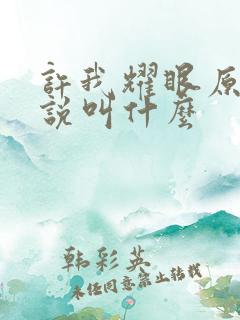 許我耀眼原
說叫什麼
韩彩英
未经同意禁止转载